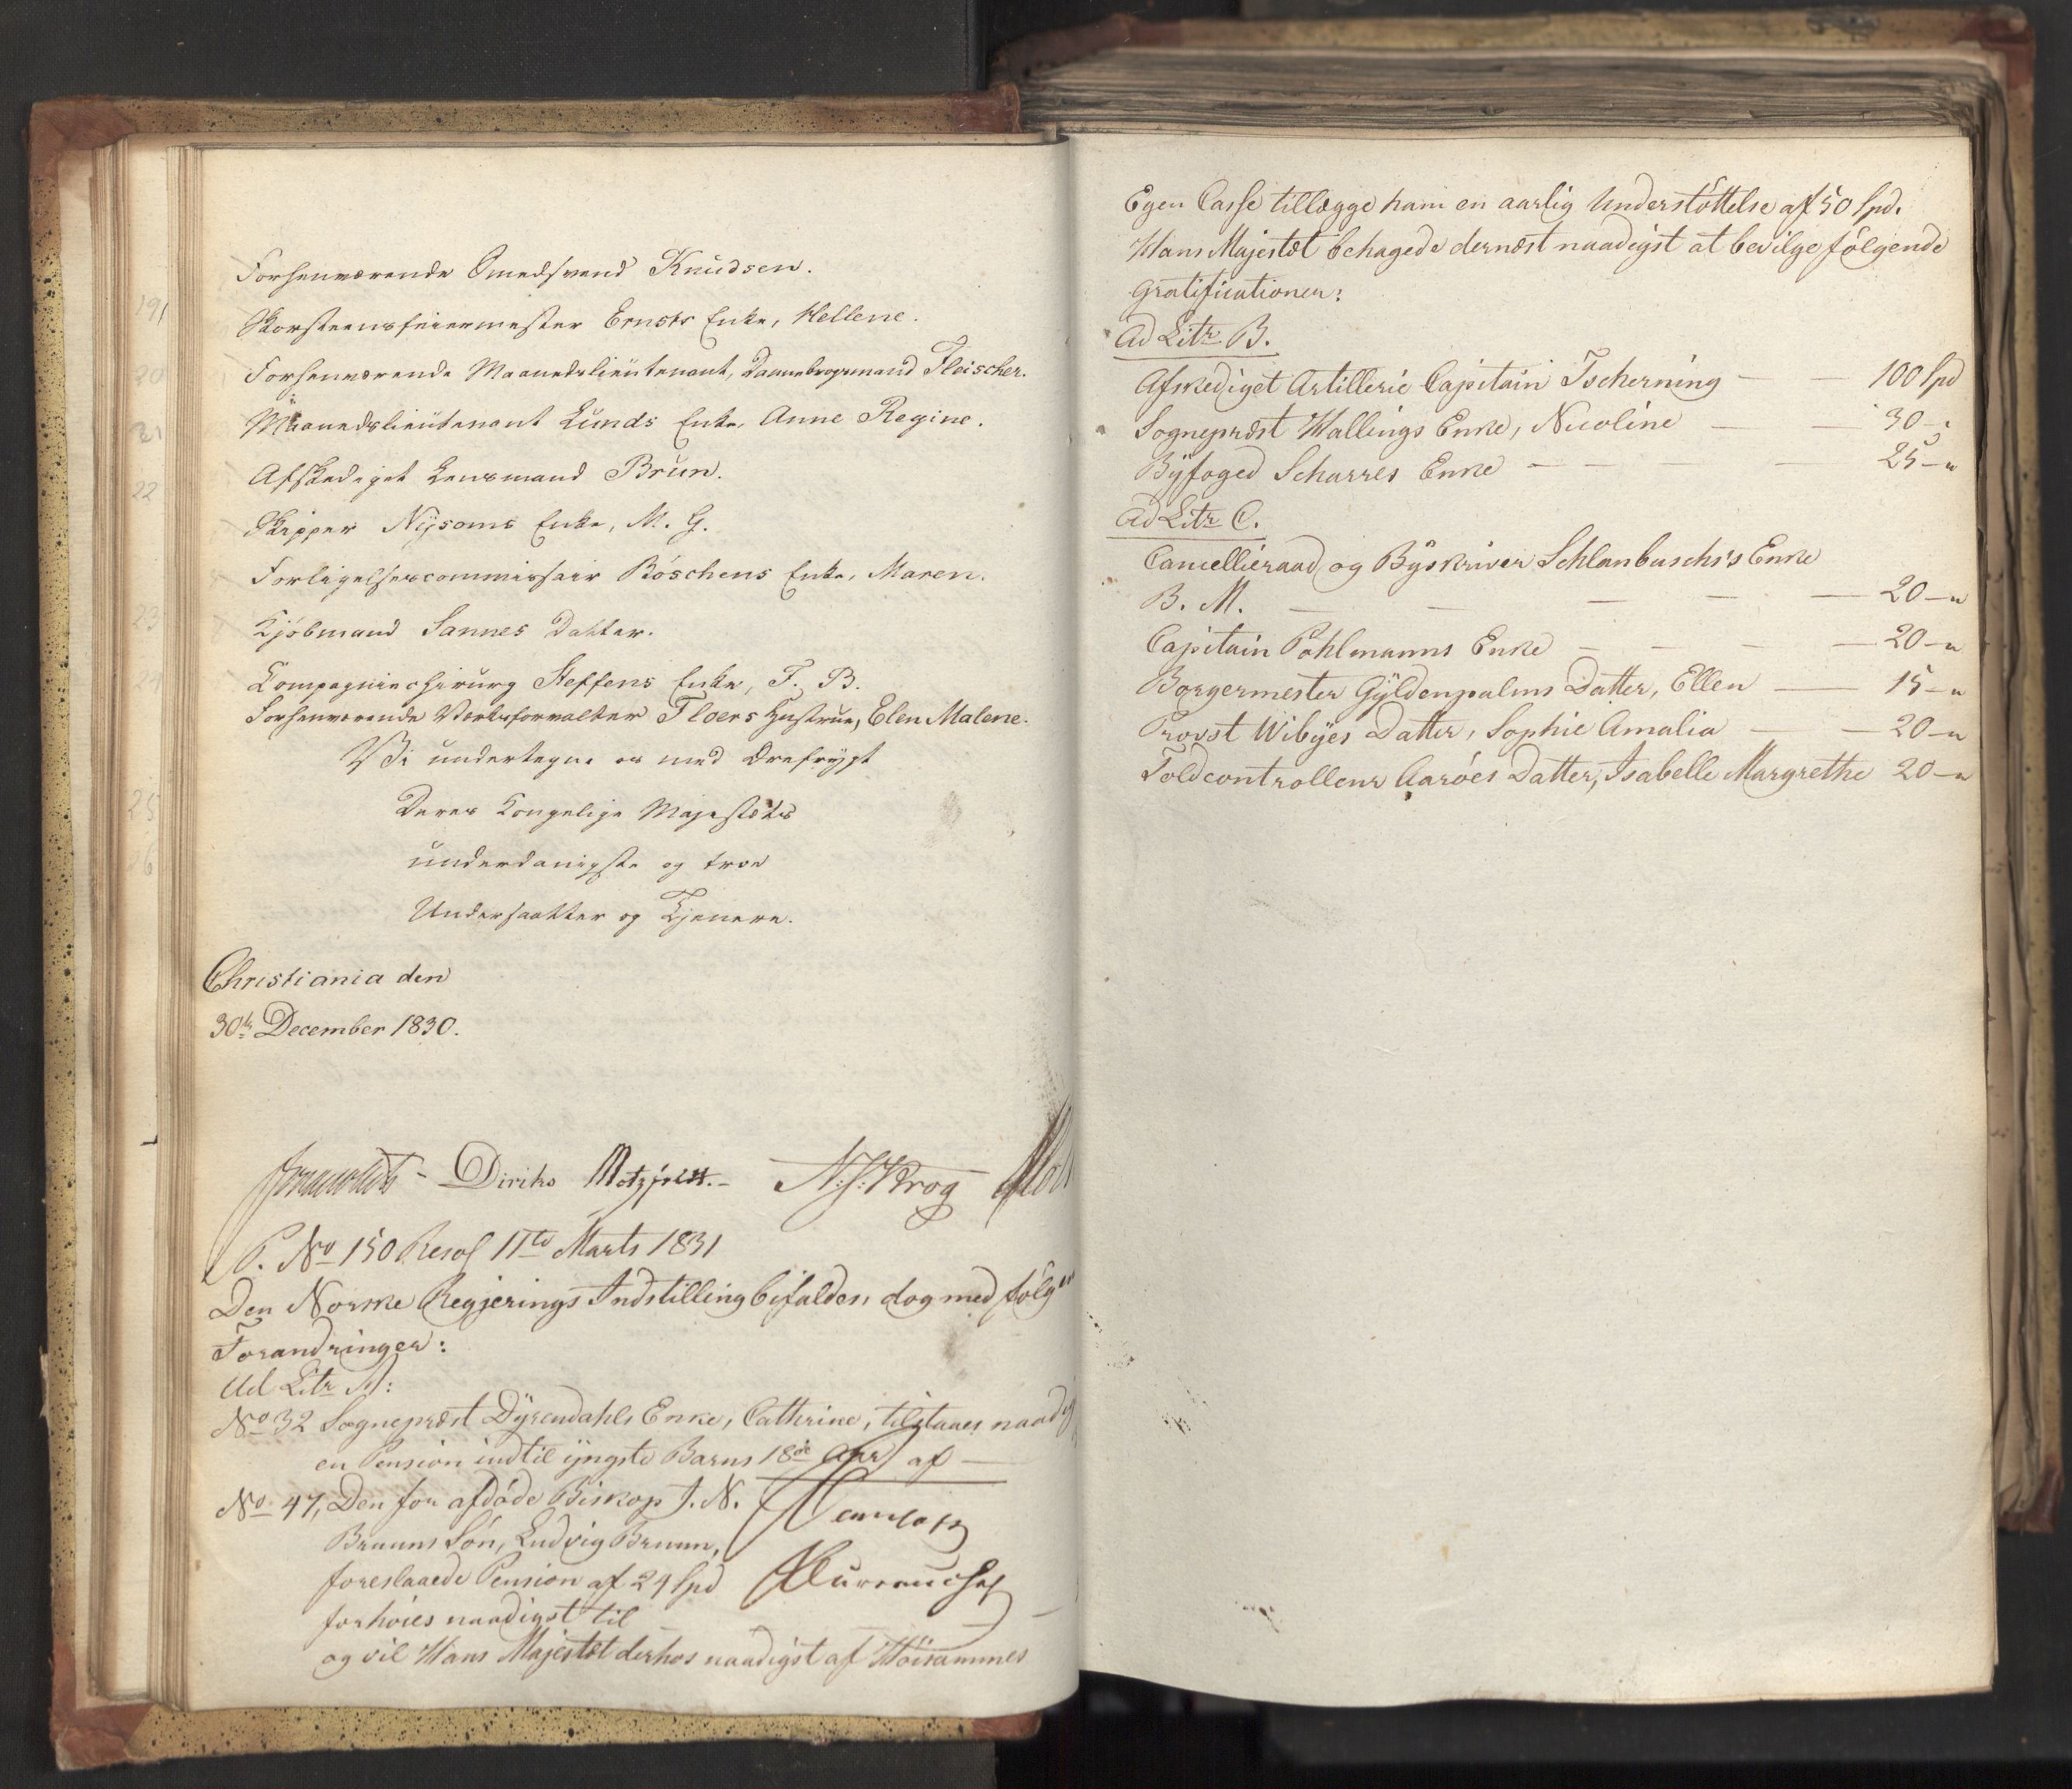 Forhenværende Smedsvend Knudsen.
Skorsteensfeiermester Ernsts Enke, Hellene.
Forhenværende Maanedslieutenant, Dannebrogsmand Fleischer.
Maanedslieutenant Lunds Enke, Anne Regine.
Afskediget Lensmand Brun.
Skipper Nysoms Enke, M. G.
Forligelsescommissair Böschens Enke, Maren.
Kjöbmand Sannes Datter.
Compagniechirurg Steffens Enke, F. B.
Forhenværende Værksforvalter Floers Hustrue, Elen Malene.
Vi undertegne os med Ærefrygt
Deres Kongelige Majestæts
underdanigste og troe
Undersaatter og Tjenere.
Christiania den
30te December 1830.
Diriks Motzfeldt.- N. J. Krog
P. No 150 Resol 11te Marts 1831
Den Norske Regjerings Indstilling bifaldes, dog med følgen
Forandringer:
Ad Litr A:
No 32 Sognepræst Dyrendahls Enke, Cathrine, tilstaaes naadig
en Pension indtil yngste Barns 18de Aar af —
No 47, Den for afdöde Biskop J. N.
Bruuns Sön, Ludvig Bruun,
foreslaaede Pension af 24 Spd
forhöies naadigst til —
og vil Hans Majestæt derhos naadigst af Höisammes
Egen Casse tillægge ham en aarlig Understöttelse af 50 Spd.
Hans Majestæt behagede dernæst naadigst at bevilge fölgende
Gratificationer:
Ad Litr B.
Afskediget Artillerie Capitain Tscherning — — 100 Spd
Sognepræst Hallings Enke, Nicoline — — 30 — "
Byfoged Scharres Enke — — — — 25 — "
Ad Litr C.
Cancellieraad og Byskriver Schlanbusch's Enke
B. M. — — — — — 20 — "
Capitain Pohlmanns Enke — — — — 20 — "
Borgermester Gyldenpalms Datter, Ellen — — 15 — "
Provst Wibyes Datter, Sophie Amalia — — 20 — "
Toldcontrolleur Aaröes Datter, Isabelle Margrethe 20 — "